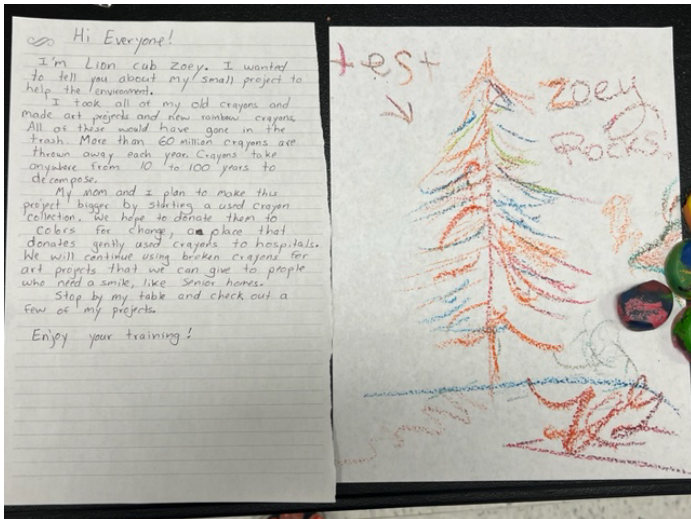 Hi Everyone!
I'm Lion cub Zoey. I wanted
to tell you about my small project to
help the environment.
I took all of my old crayons and
made art projects and new rainbow crayons.
All of these would have gone in the
trash. More than 60 million crayons are
thrown away each year. Crayons take
anywhere from 10 to 100 years to
decompose.
My mom and I plan to make this
project bigger by starting a used crayon
collection. We hope to donate them to
colors for change, a place that
donates gently used crayons to hospitals.
We will continue using broken crayons for
art projects that we can give to people
who need a smile, like senior homes.
Stop by my table and check out a
few of my projects.
Enjoy your training!
test
Zoey
Rocks.